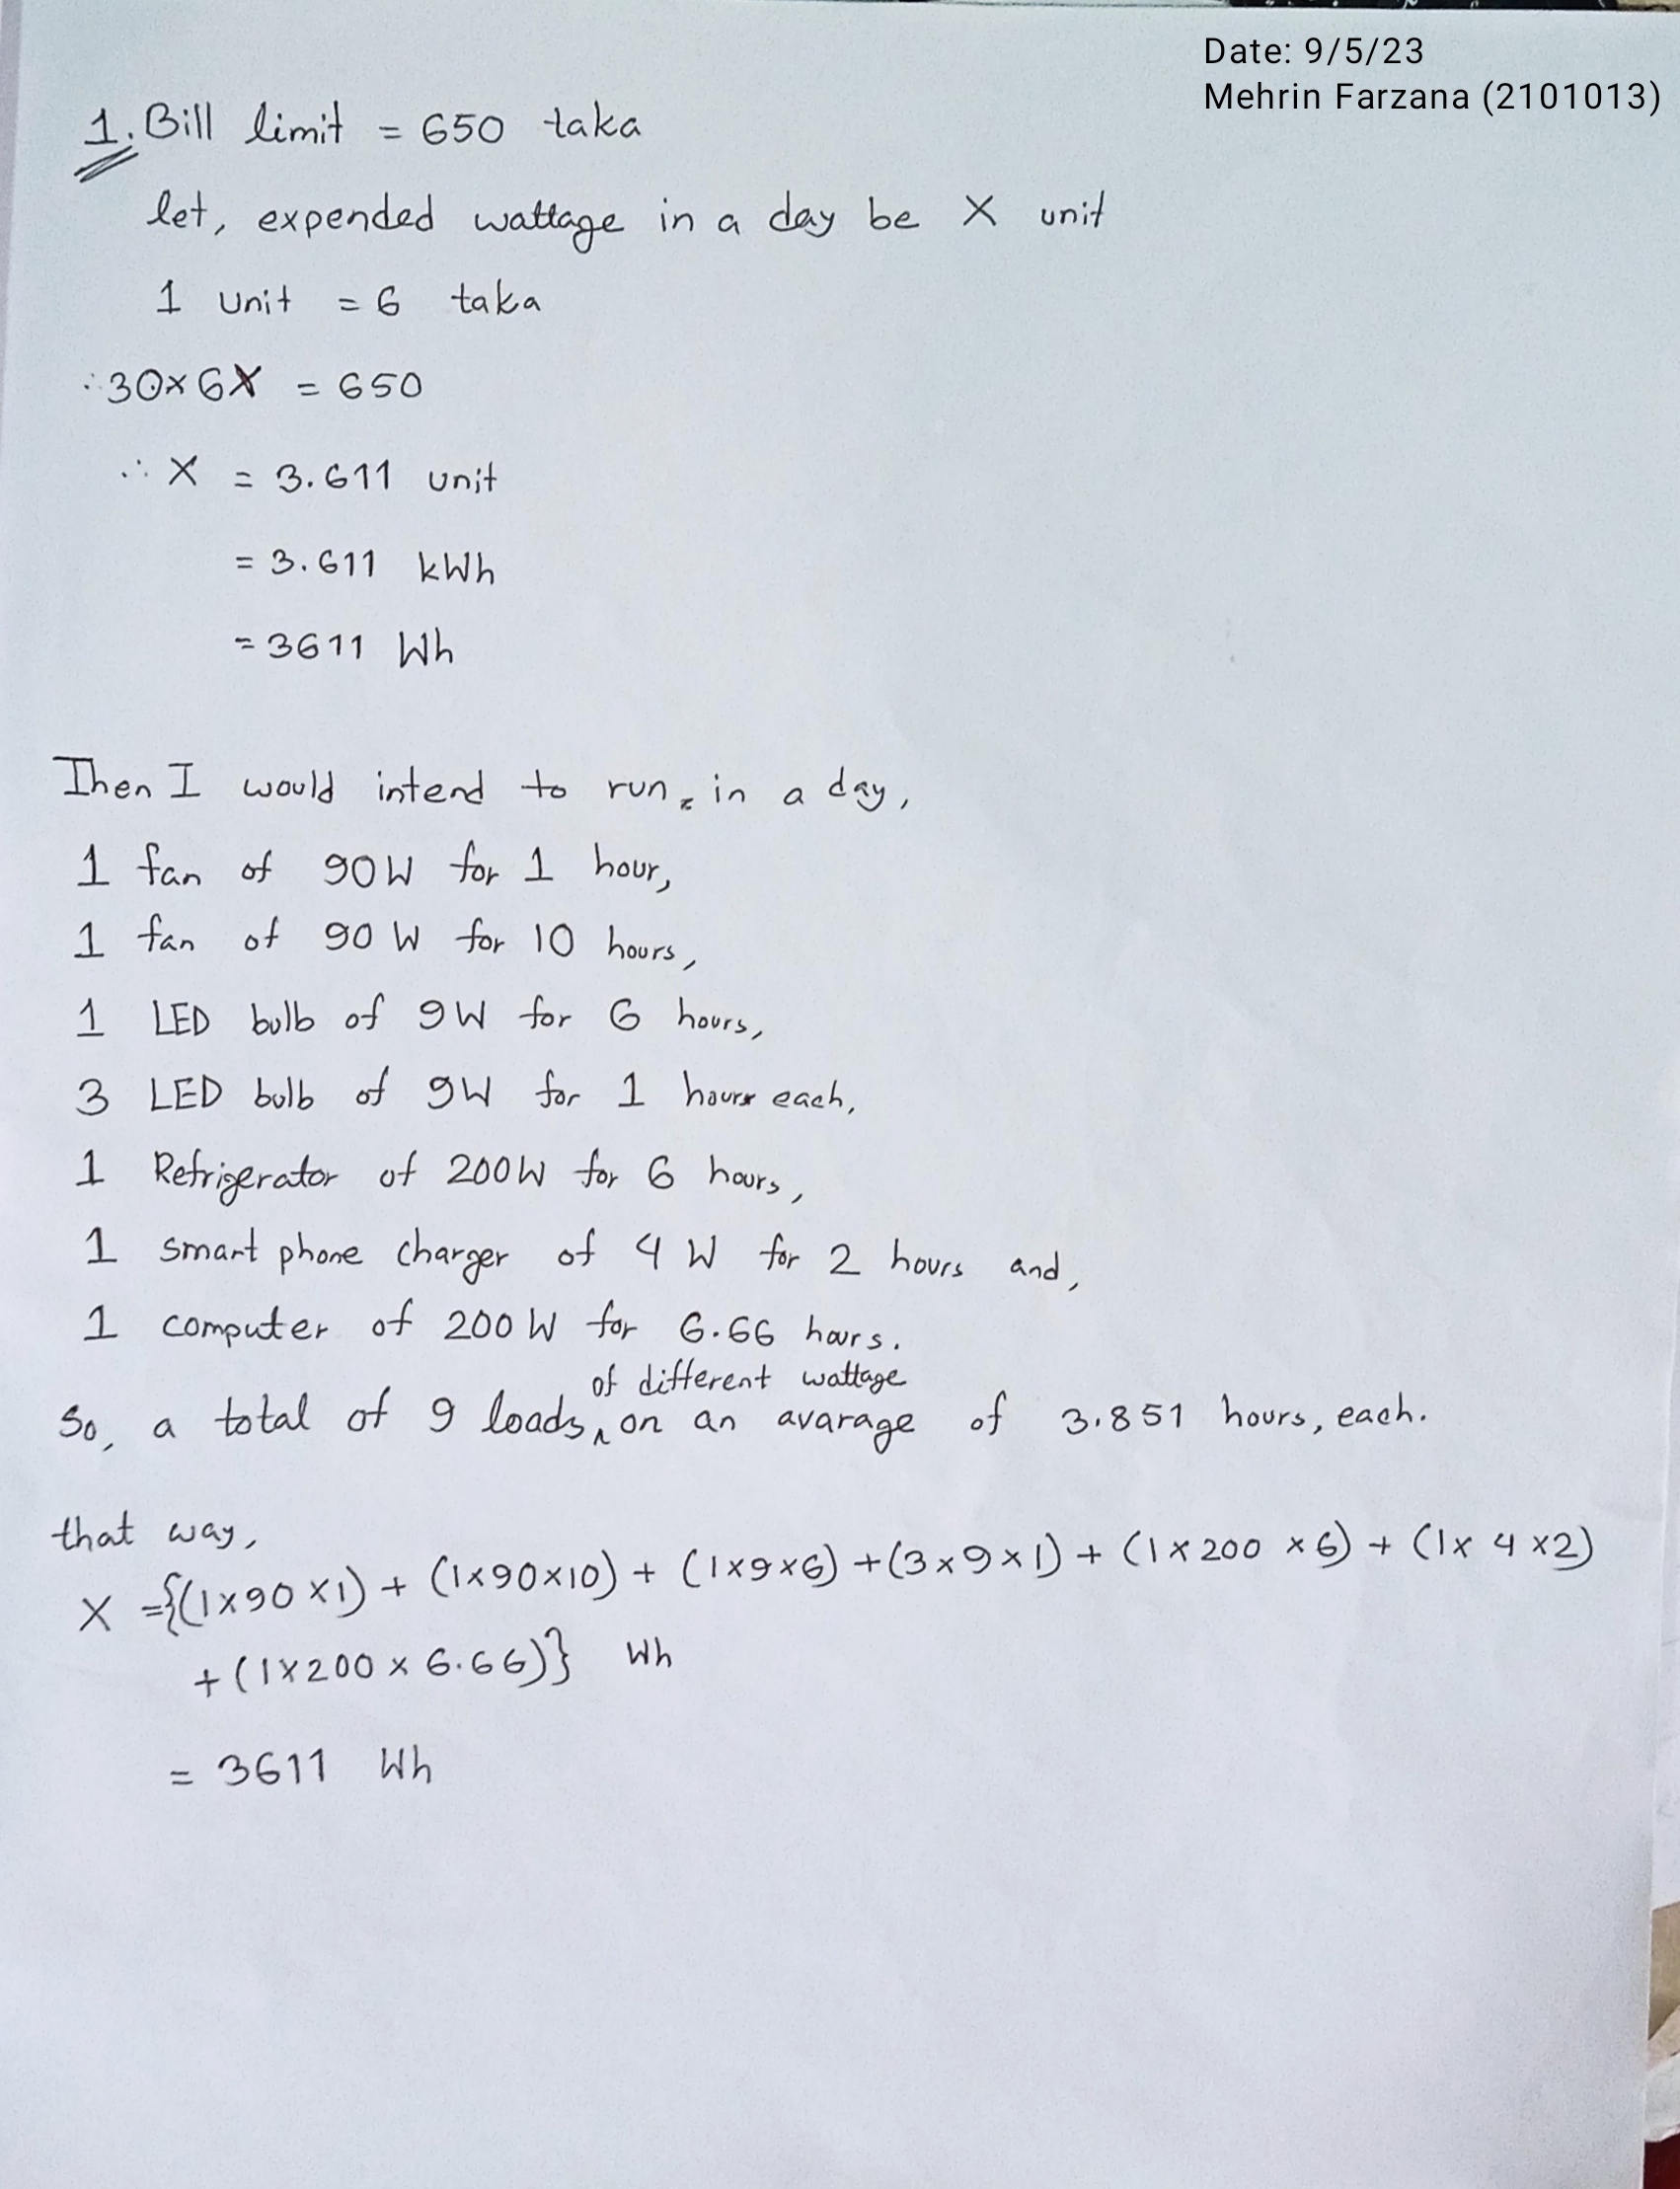 Date: 9/5/23
Mehrin Farzana (2101013)
1. Bill limit = 650 taka
let, expended wattage in a day be X unit
1 unit = 6 taka
∴ 30 × 6X = 650
∴ X = 3.611 unit
= 3.611 kWh
= 3611 Wh
Then I would intend to run, in a day,
1 fan of 90W for 1 hour,
1 fan of 90 W for 10 hours,
1 LED bulb of 9W for 6 hours,
3 LED bulb of 9W for 1 hours each,
1 Refrigerator of 200W for 6 hours,
1 smart phone charger of 4 W for 2 hours and,
1 computer of 200 W for 6.66 hours.
of different wattage
So, a total of 9 loads, on an avarage of 3.851 hours, each.
that way,
X = {(1×90×1) + (1×90×10) + (1×9×6) + (3×9×1) + (1×200×6) + (1×4×2)
+ (1×200×6.66)} Wh
= 3611 Wh